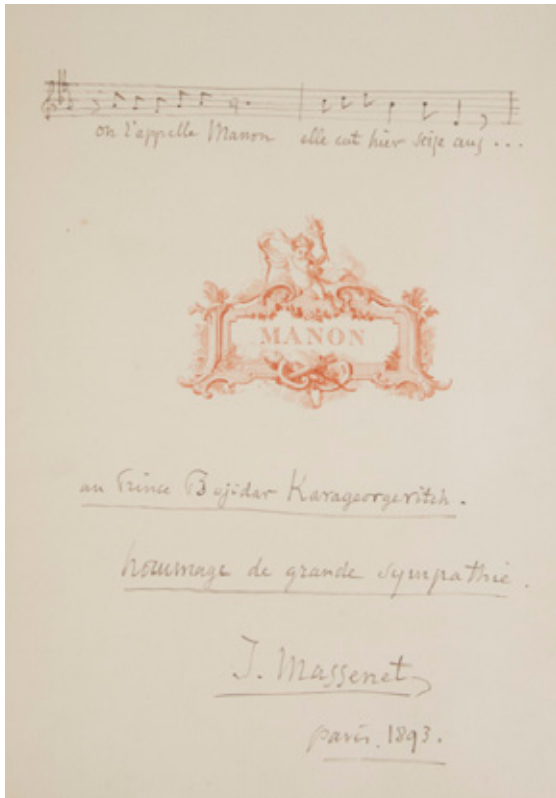 on l'appelle Manon elle eut hier seize ans ...
MANON
au Prince Bojidar Karageorgevitch.
hommage de grande sympathie.
J. Massenet
Paris. 1893.